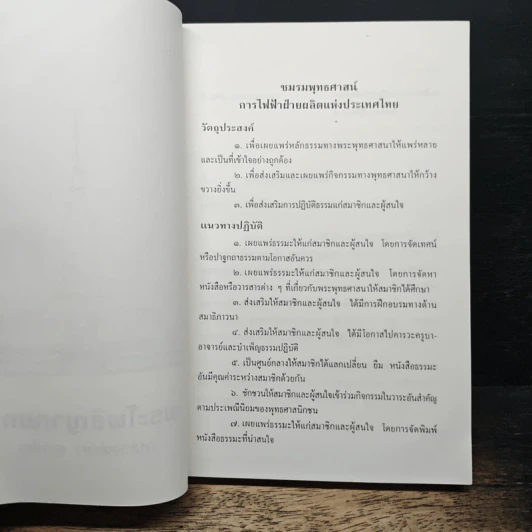 ชมรมพุทธศาสน์
การไฟฟ้าฝ่ายผลิตแห่งประเทศไทย
วัตถุประสงค์
๑. เพื่อเผยแพร่หลักธรรมทางพระพุทธศาสนาให้แพร่หลาย
และเป็นที่เข้าใจอย่างถูกต้อง
๒. เพื่อส่งเสริมและเผยแพร่กิจกรรมทางพุทธศาสนาให้กว้าง
ขวางยิ่งขึ้น
๓. เพื่อส่งเสริมการปฏิบัติธรรมแก่สมาชิกและผู้สนใจ
แนวทางปฏิบัติ
๑. เผยแพร่ธรรมะให้แก่สมาชิกและผู้สนใจ โดยการจัดเทศน์
หรือปาฐกถาธรรมตามโอกาสอันควร
๒. เผยแพร่ธรรมะให้แก่สมาชิกและผู้สนใจ โดยการจัดหา
หนังสือหรือวารสารต่าง ๆ ที่เกี่ยวกับพระพุทธศาสนาให้สมาชิกได้ศึกษา
๓. ส่งเสริมให้สมาชิกและผู้สนใจ ได้มีการฝึกอบรมทางด้าน
สมาธิภาวนา
๔. ส่งเสริมให้สมาชิกและผู้สนใจ ได้มีโอกาสไปคารวะครูบา-
อาจารย์และบำเพ็ญธรรมปฏิบัติ
๕. เป็นศูนย์กลางให้สมาชิกได้แลกเปลี่ยน ยืม หนังสือธรรมะ
อันมีคุณค่าระหว่างสมาชิกด้วยกัน
๖. ชักชวนให้สมาชิกและผู้สนใจเข้าร่วมกิจกรรมในวาระอันสำคัญ
ตามประเพณีนิยมของพุทธศาสนิกชน
๗. เผยแพร่ธรรมะให้แก่สมาชิกและผู้สนใจ โดยการจัดพิมพ์
หนังสือธรรมะที่น่าสนใจ